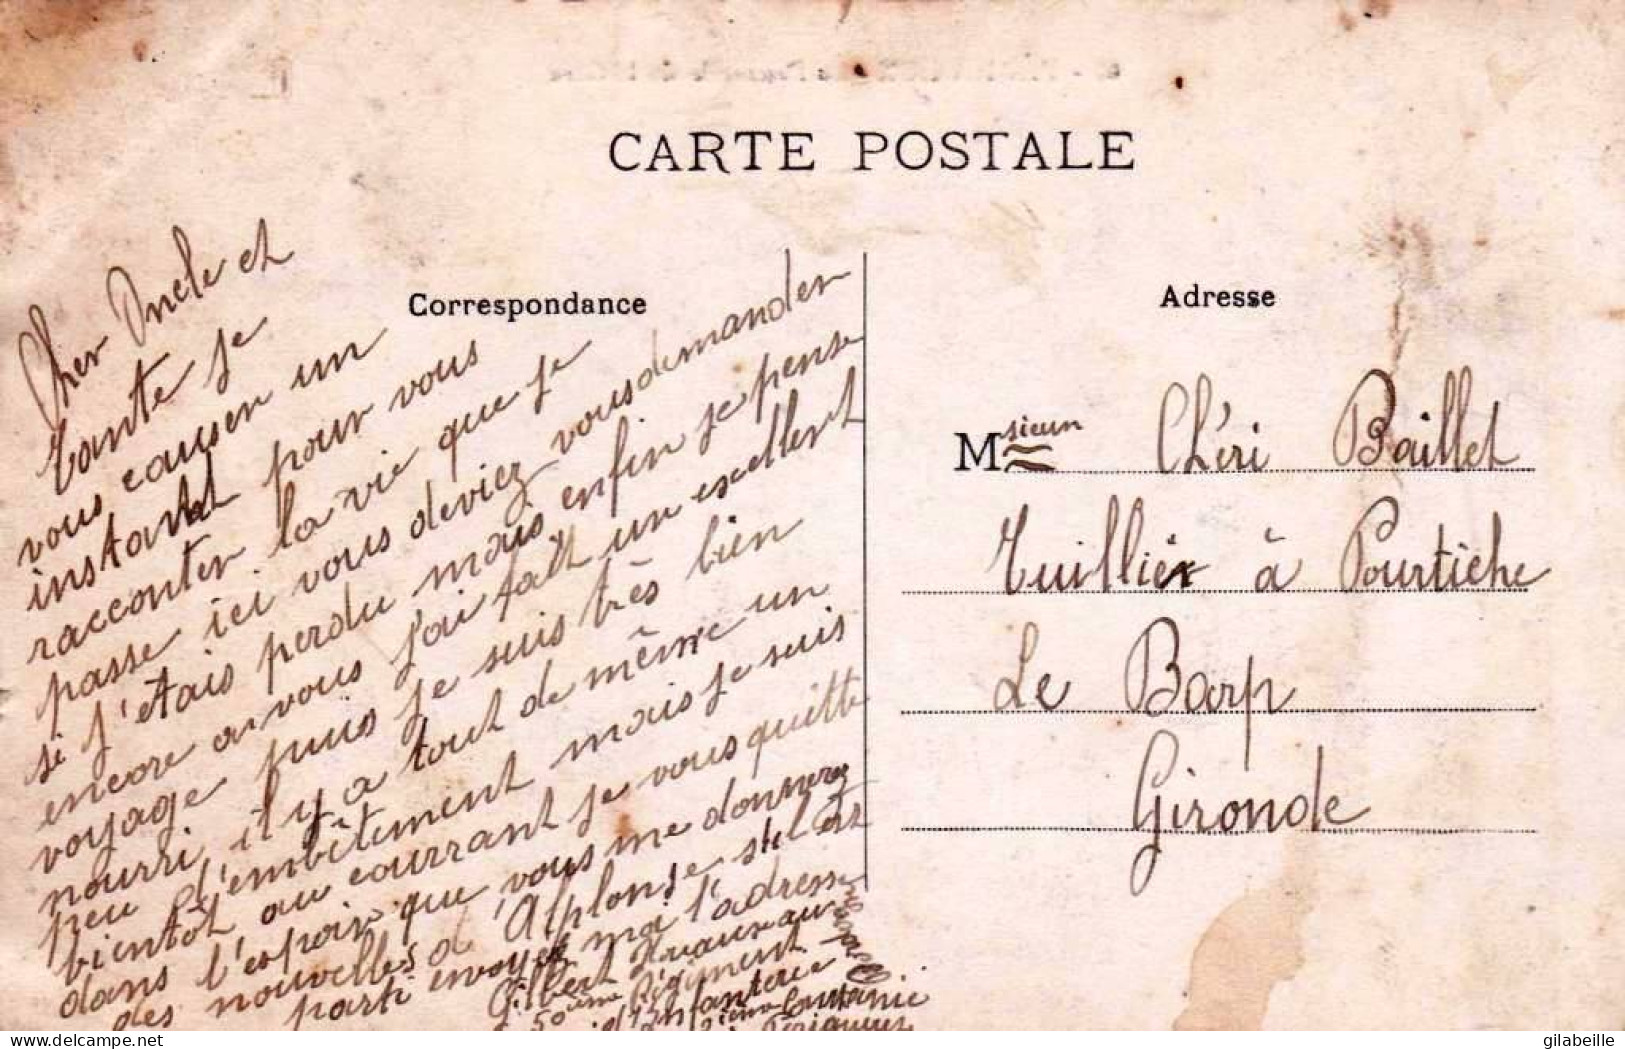 CARTE POSTALE
Correspondance
Cher Oncle et
tante je
vous causer un
instant pour vous
racconter la vie que je
passe ici vous deviez vous demander
si j'étais perdu mais enfin je pense
encore a vous j'ai fait un excellent
voyage puis je suis très bien
nourri il y a tout de même un
peu d'embêtement mais je suis
bientôt au courrant je vous quitte
dans l'espoir que vous me donnerez
des nouvelles d'Alphonse s'il est
parti envoyez moi l'adresse
Gilbert
50ème Régiment
d'Infanterie
2ième Compagnie
Adresse
Msieur Chéri Baillet
Tuillier à Pourtiche
Le Barp
Gironde
gilabeille